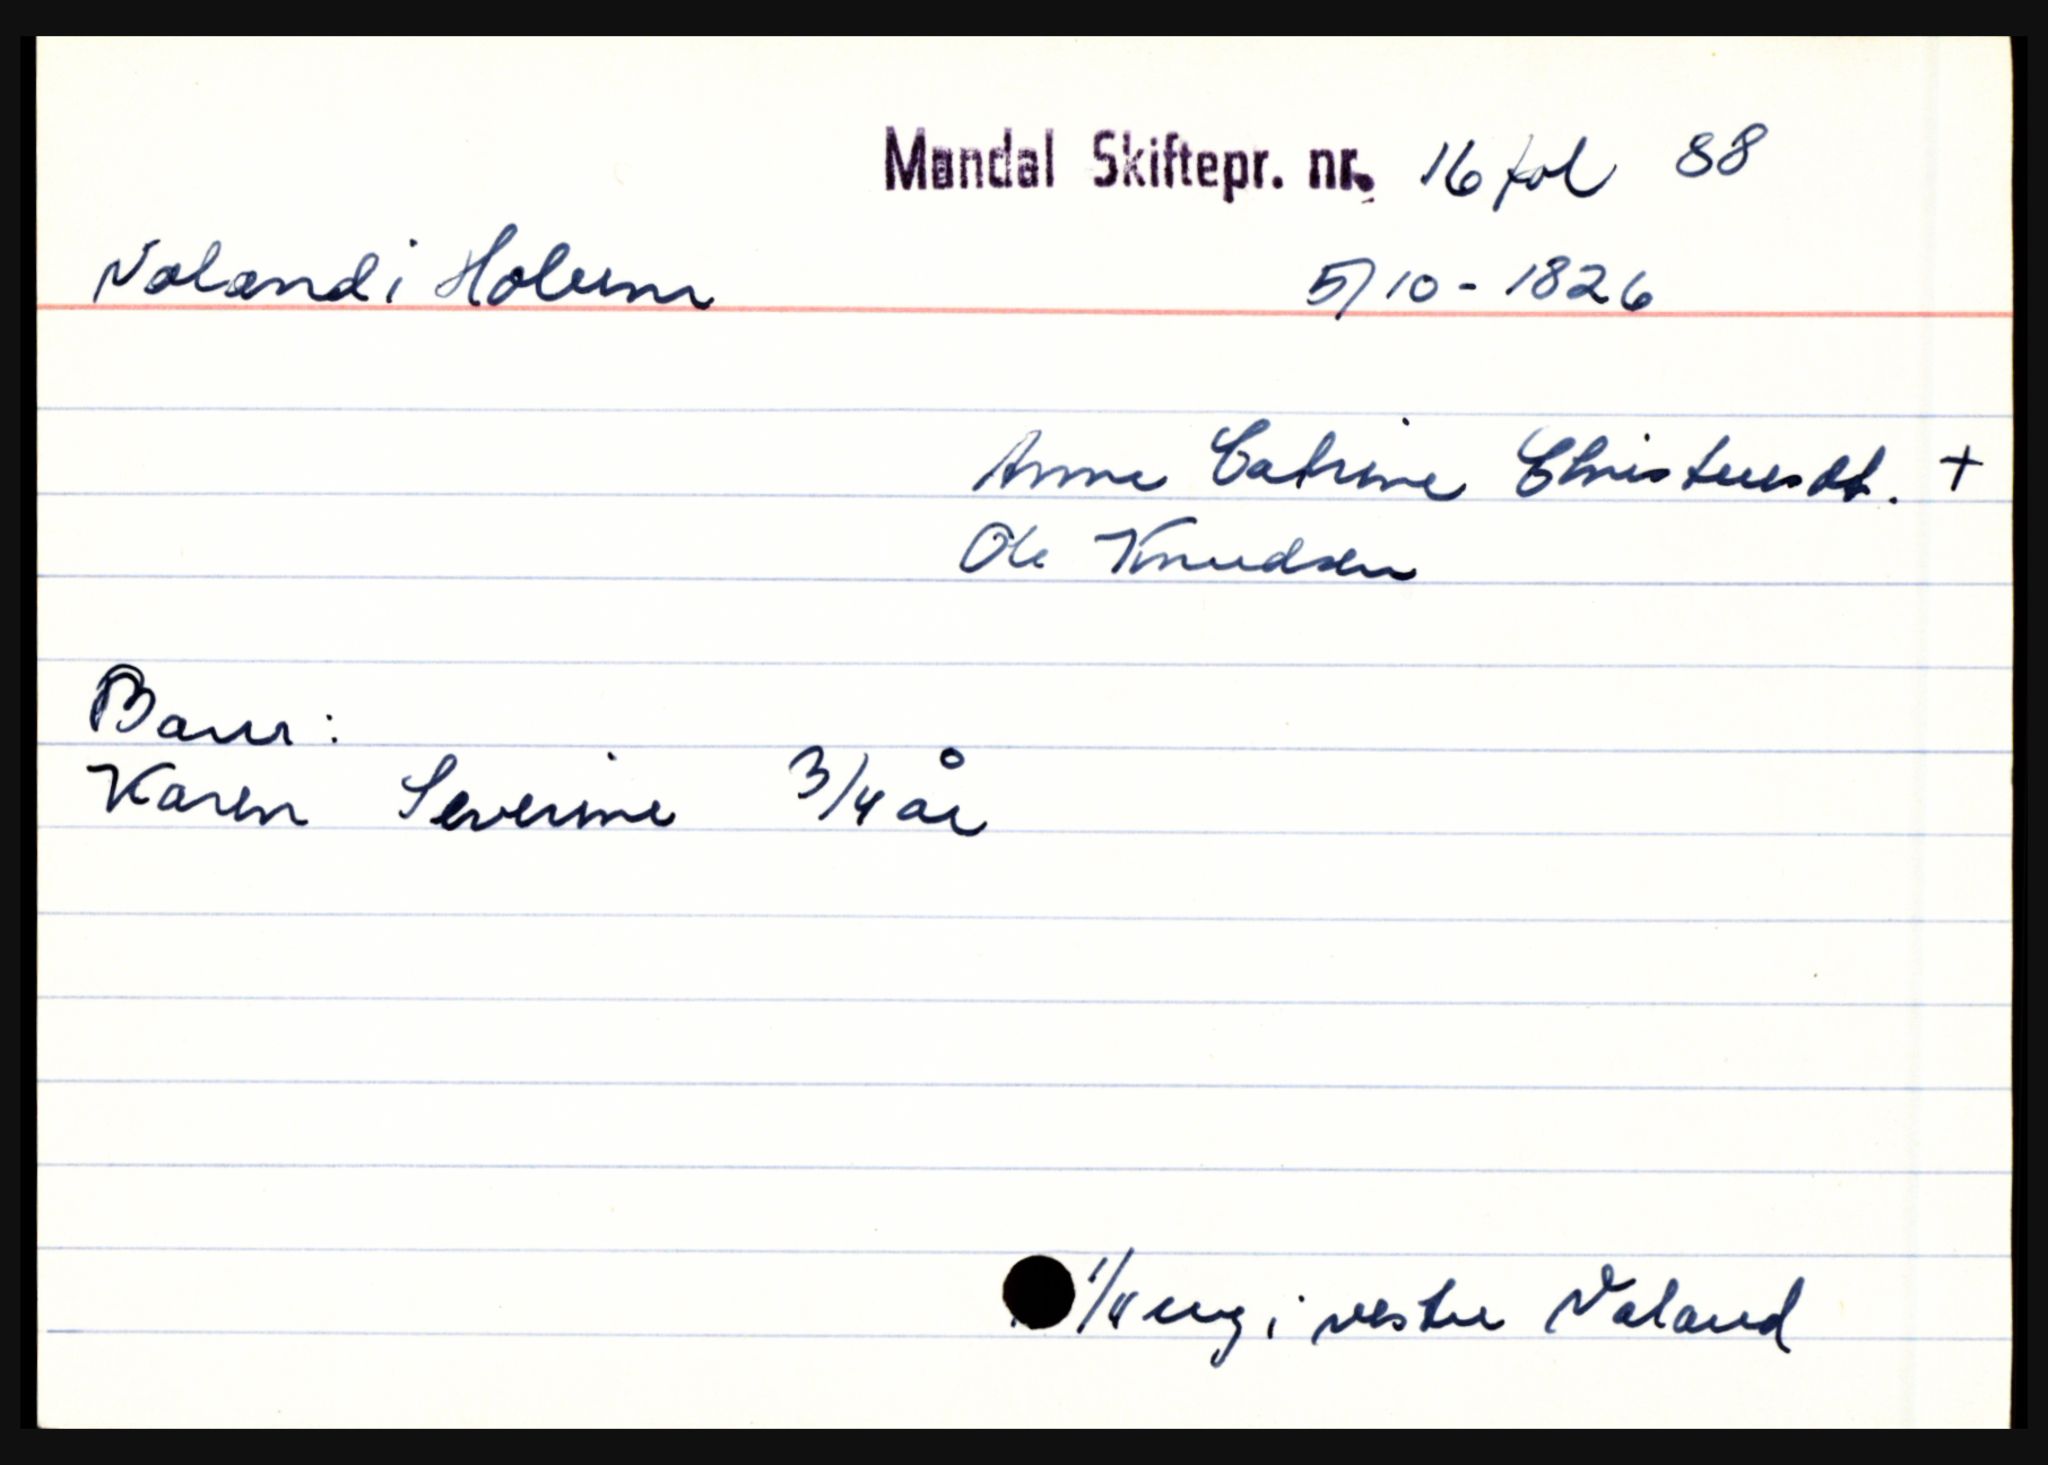 Mandal Skiftepr. nr. 16 fol 88
Valand i Holum 5/10 - 1826
Anne Catrine Christensdt. +
Ole Knudsen
Barn:
Karen Severine 3/4 år
1/4 eng i vestre Valand